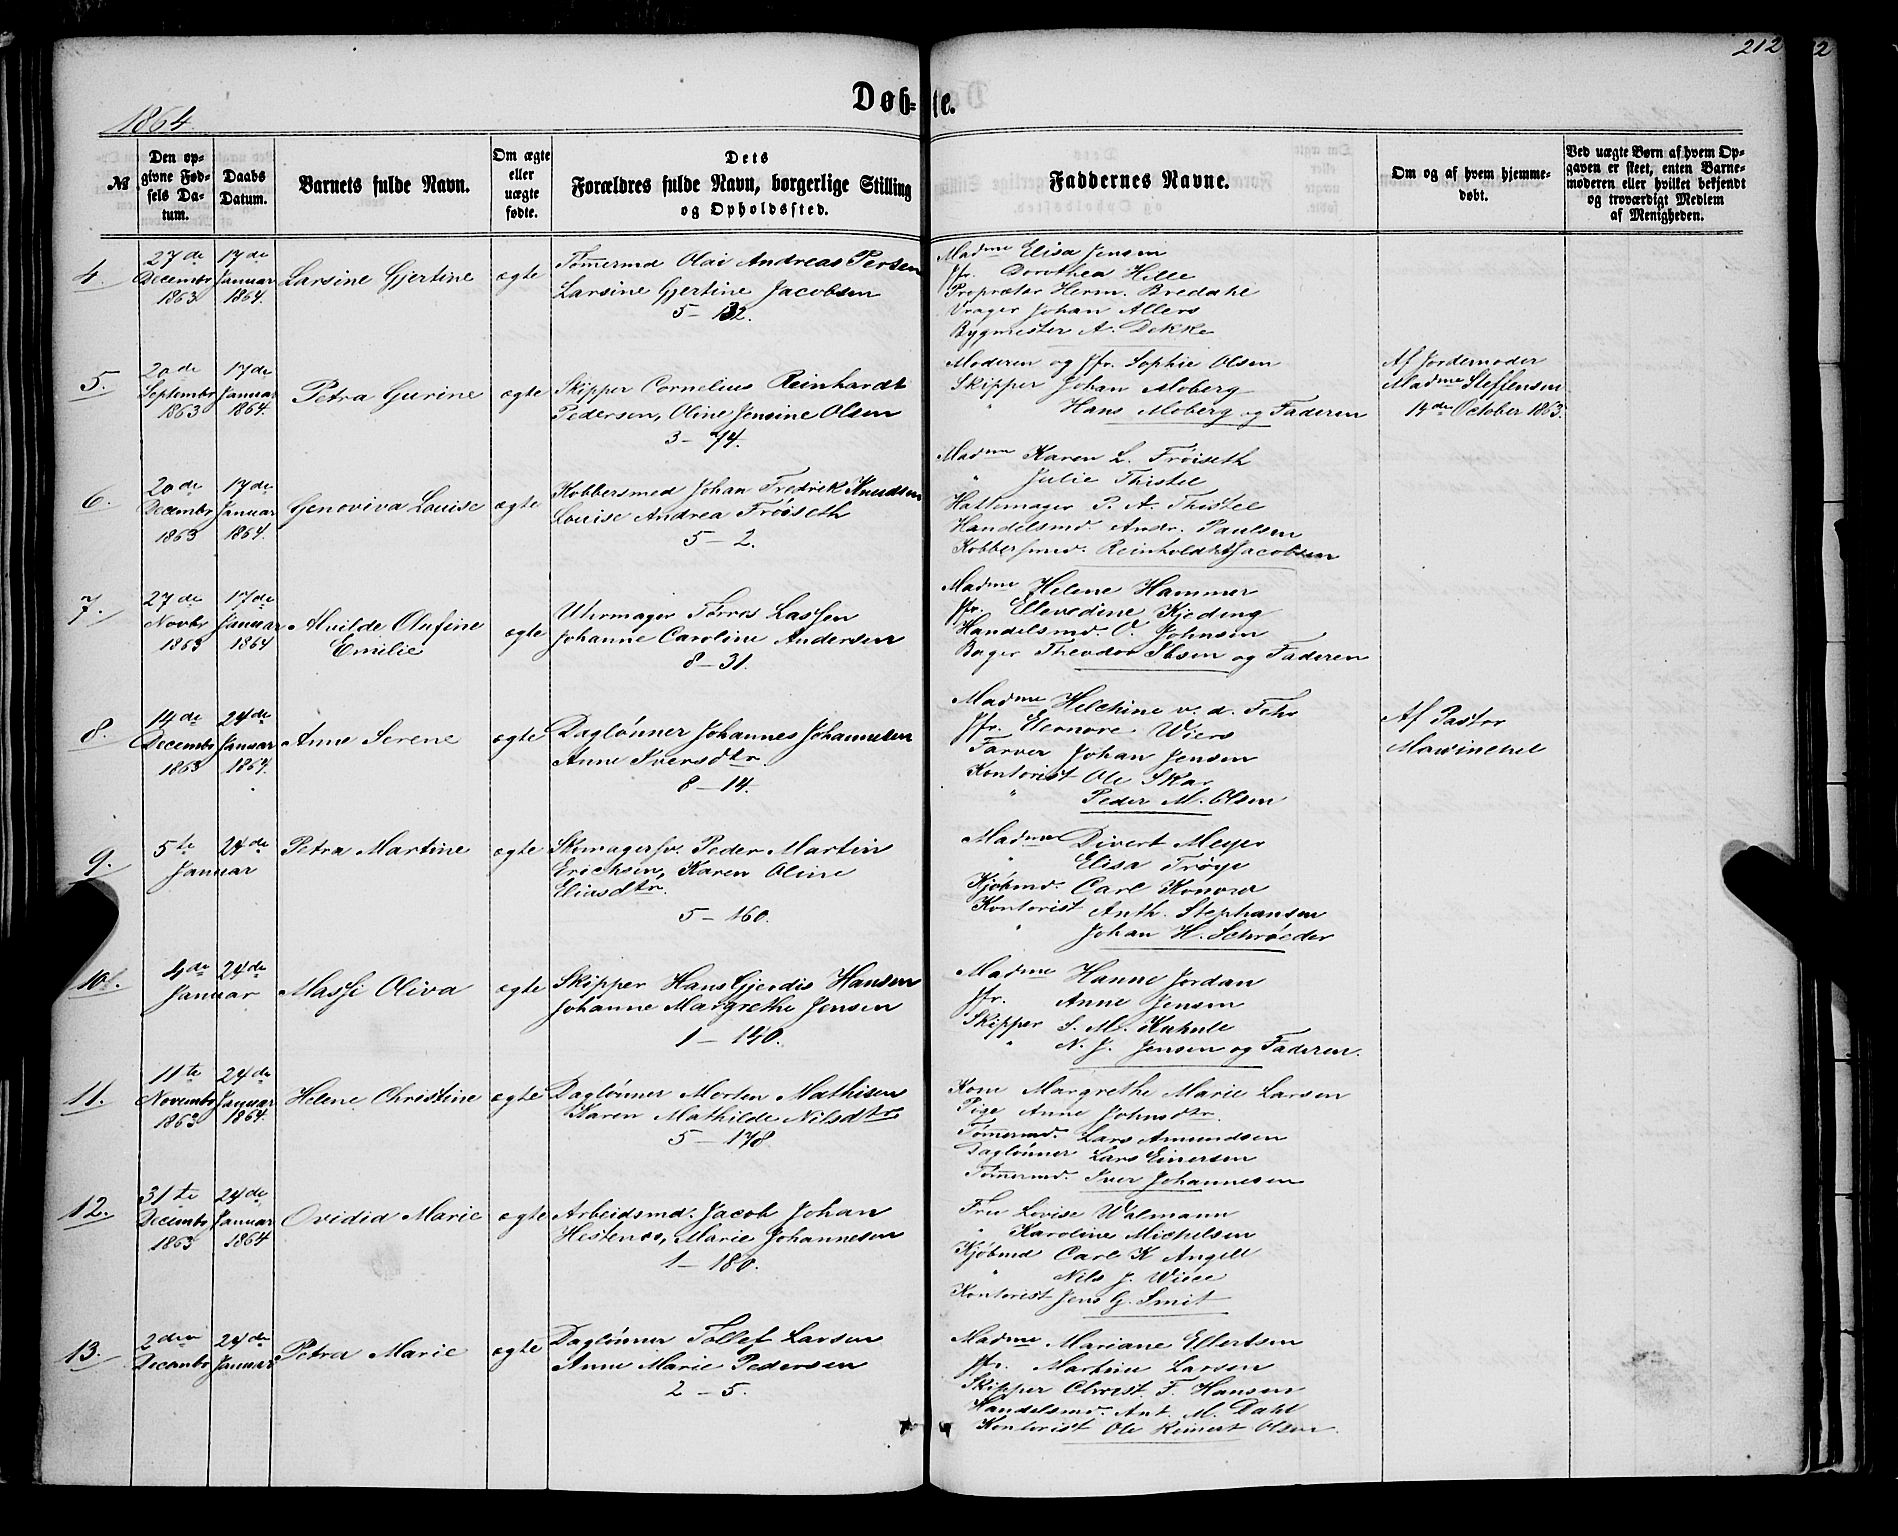 212
1864
Døb-te.
№
Den op-
givne Fød-
sels Da-
tum.
Daabs
Datum.
Barnets fulde Navn.
Om ægte
eller
uægte
fødte.
Dets
Forældres fulde Navn, borgerlige Stilling
og Opholdssted.
Faddernes Navne.
Om og af hvem hjemme-
døbt.
Ved uægte Børn af hvem Op-
gaven er skeet, enten Barne-
moderen eller hvilket bekjendt
og troværdigt Medlem
af Menigheden.
4.
27de
Decembr
1863
17de
Januar
1864.
Larsine Gjertine
ægte
Tømermd Olai Andreas Persen
Larsine Gjertine Jacobsen
5 - 132.
Madme Elisa Jensen
Jfr. Dorothea Hille
Proprætor Herm. Bredahl
Vrager Johan Allers
Bygmester A. Dekke
5.
20de
Septembr
1863
17de
Januar
1864.
Petra Gurine
ægte
Skipper Cornelius Reinhardt
Pedersen, Oline Jensine Olsen
3 - 74.
Moderen og Jfr. Sophie Olsen
Skipper Johan Moberg
" Hans Moberg og Faderen
Af Jordemoder
Madme Steffensen
14de October 1863.
6.
20de
Decembr
1863
17de
Januar
1864.
Genoviva Louise
ægte
Kobbersmed Johan Fredrik Knudsen
Louise Andrea Frøiseth
5 - 2.
Madme Karen L. Frøiseth
" Julie Thistel
Hattemager P. A. Thistel
Handelsmd. Andr. Paulsen
Kobbersmd. Reinholdt Jacobsen
7.
27de
Novbr
1863
17de
Januar
1864
Alvilde Olufine
Emilie
ægte
Uhrmager Tørres Lassen
Johanne Caroline Andersen
8 - 31.
Madme Helene Hammer
Jfr. Ellevedine Kjeding
Handelsmd. O. Johnsen
Bager Theodor Ibsen og Faderen
8.
14de
Decembr
1863
24de
Januar
1864.
Anne Serene
ægte
Daglønner Johannes Johannesen
Anne Iversdtr.
8 - 14.
Madme Helchine v. d. Fehr
Jfr. Elenore Wiers
Farver Johan Jensen
Kontorist Ole Skar
" Peder M. Olsen
Af Pastor
9.
5te
Januar
24de
Petra Martine
ægte
Skomagersv. Peder Martin
Erichsen, Karen Oline
Eliasdtr.
5 - 160.
Madme Divert Meyer
" Elisa Trøye
Kjøbmd. Carl Konow
Kontorist Anth. Stephansen
" Johan H. Schrøeder
10.
4de
Januar
24de
Massi Oliva
ægte
Skipper Hans Gjerdis Hansen
Johanne Margrethe Jensen
1 - 140.
Madme Hanne Jordan
Jfr. Anne Jensen
Skipper S. M. Kuhnle
" N. J. Jensen og Faderen.
11.
11te
Novembr
1863
24de
Januar
1864.
Helene Christine
ægte
Daglønner Morten Mathisen
Karen Mathilde Nilsdtr
5 - 178.
Kone Margrethe Marie Larsen
Pige Anne Johnsdtr.
Tømermd. Lars Amundsen
Daglønner Lars Einersen
Tømermd. Iver Johannesen
12.
31te
Decembr
1863
24de
Januar
1864
Ovidia Marie
ægte
Arbeidsmd. Jacob Johan
Hestenes, Marie Johannesen
1 - 180.
Fru Lovise Walmann
" Karoline Michelsen
Kjøbmd Carl K Angell
" Nils J. Wiese
Kontorist Jens G. Smit
13.
2den
Decembr
24de
Januar
Petra Marie
ægte
Daglønner Tollef Larsen
Anne Marie Pedersen
2 - 5.
Madme Mariane Ellertsen
Jfr. Martine Larsen
Skipper Christ. F. Hansen
Handelsmd. Ant. M. Dahl
Kontorist Ole Rimert Olsen.